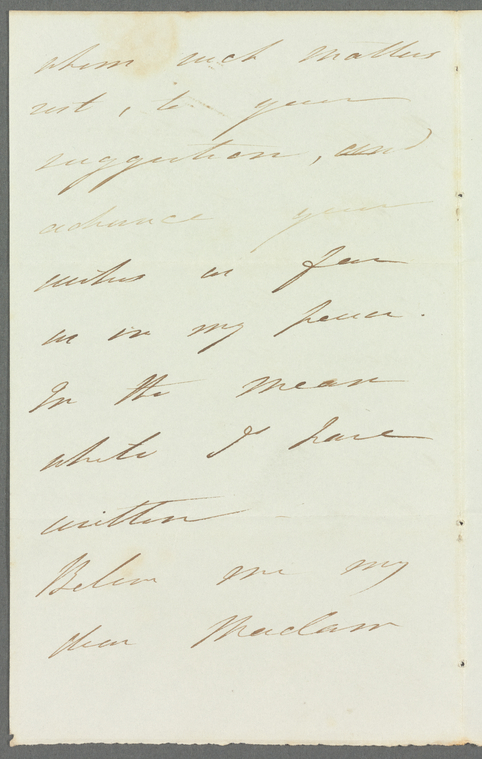 whom such matters
rest, to your
suggestion, and
advance your
wishes as far
as in my power.
In the mean
while I have
written
Believe me my
dear Madam